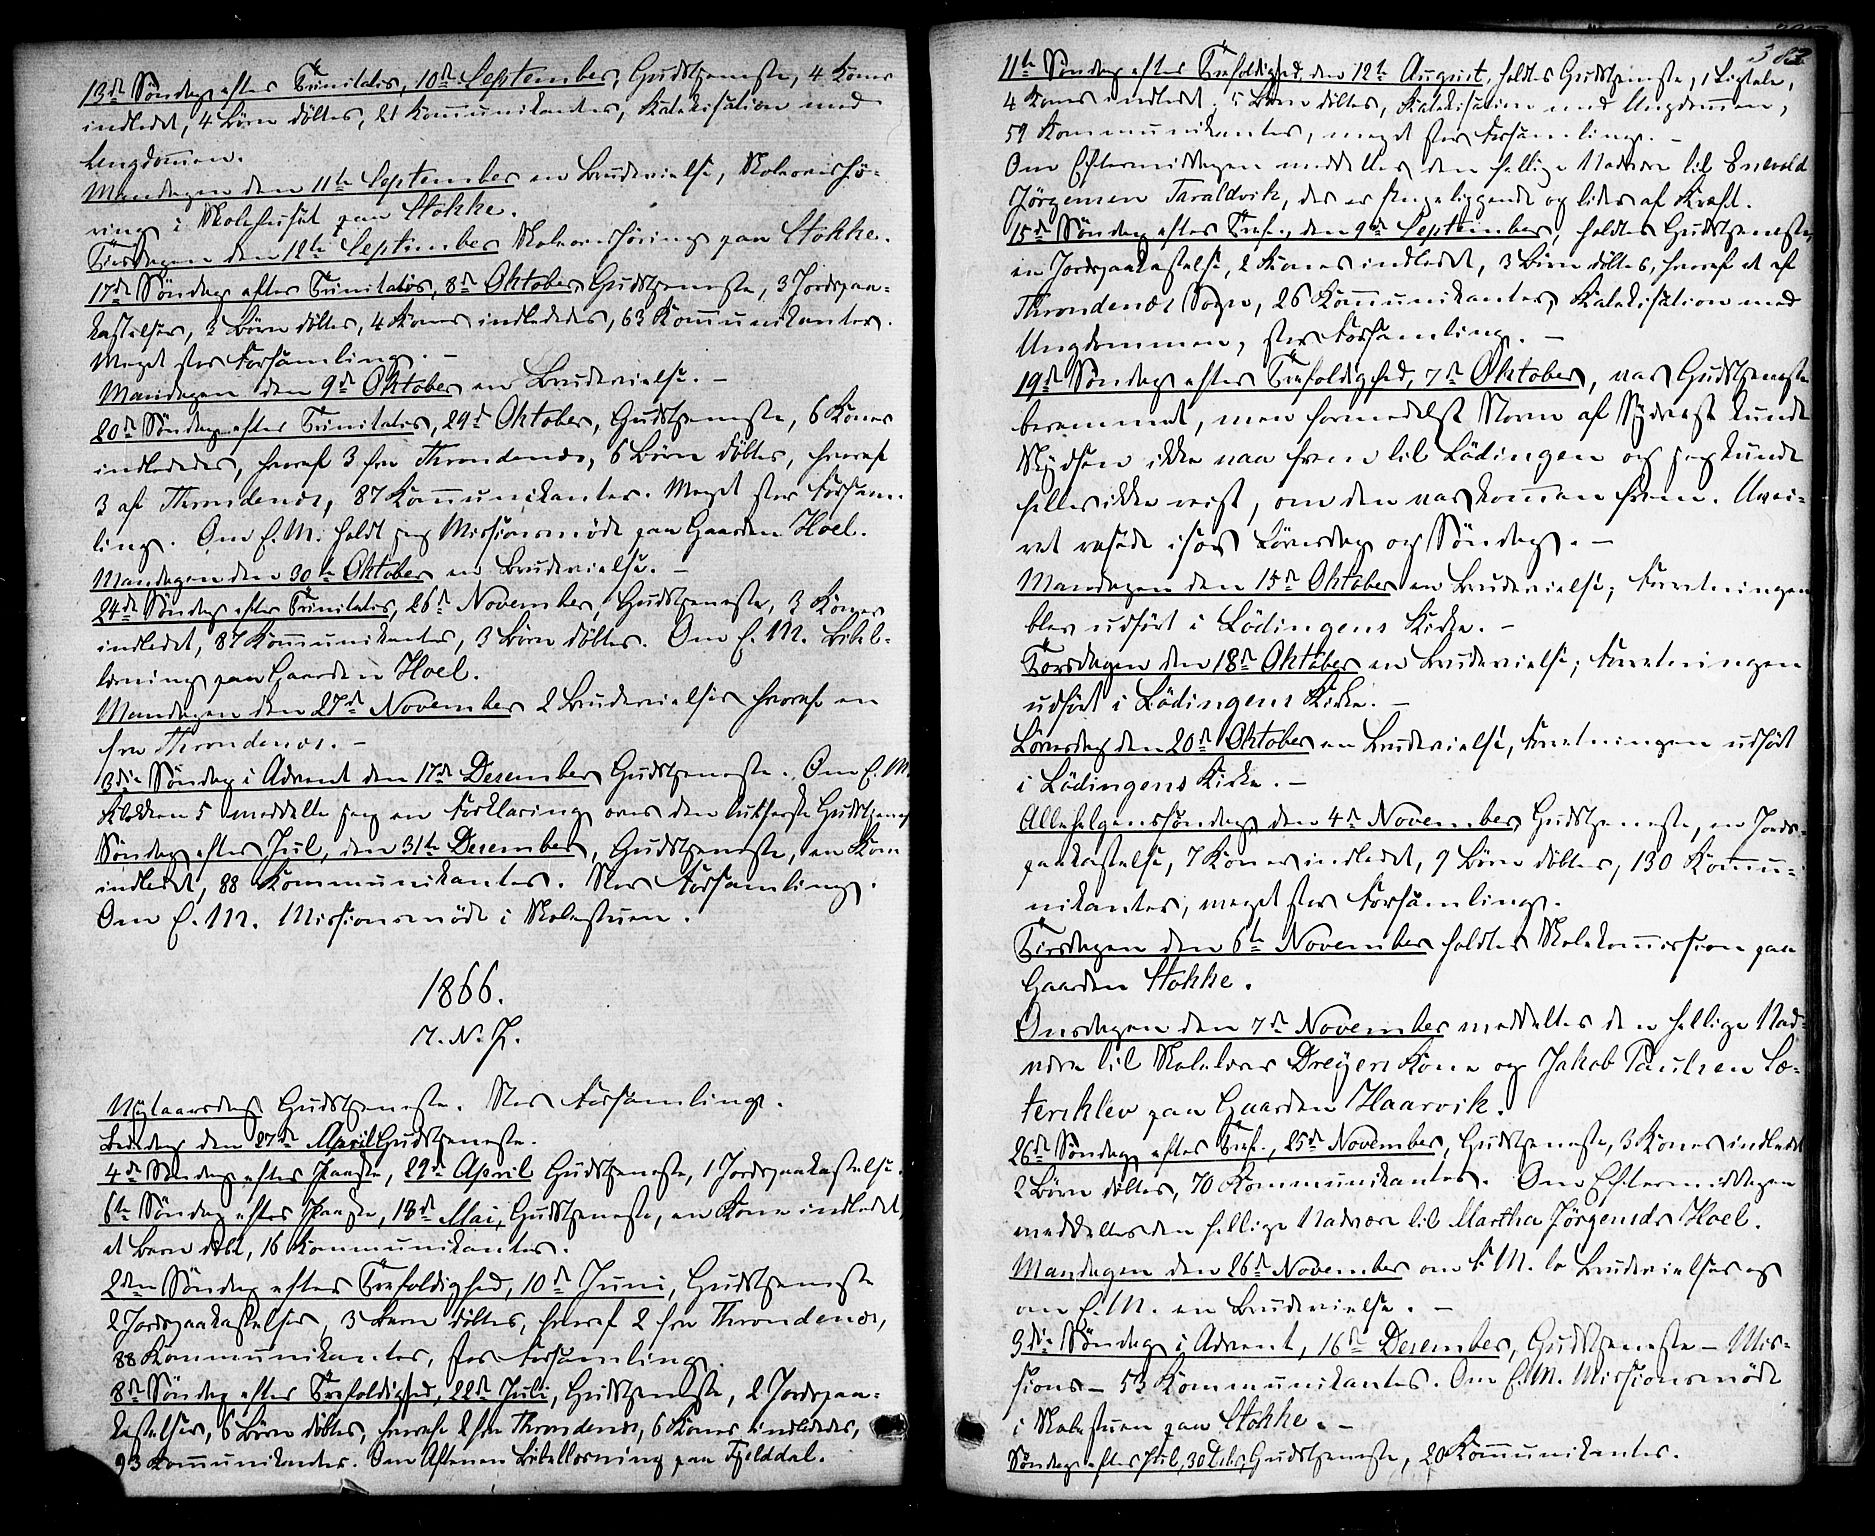 13de Søndag efter Trinitatis, 10de September, Gudstjeneste, 4 Koner
indledet, 4 Børn døbtes, 21 Kommunikanter, Katekisation med
Ungdommen.
Mandagen den 11te September en Brudevielse, Skoleovershø-
ring i Skolehuset paa Stokke.
Tirsdagen den 12te September Skoleovershøring paa Stokke.
17de Søndag efter Trinitatis, 8de Oktober, Gudstjeneste, 3 Jordspaa-
kastelser, 3 Børn døbtes, 4 Koner indlededes, 63 Kommunikanter.
Meget stor Forsamling. —
Mandagen den 9de Oktober en Brudevielse. —
20de Søndag efter Trinitatis, 29de Oktober, Gudstjeneste, 6 Koner
indlededes, hvoraf 3 fra Throndenæs, 6 Børn døbtes, hvoraf
3 af Throndenæs, 87 Kommunikanter. Meget stor Forsam-
ling. Om E.M. holdt jeg Missionsmøde paa Gaarden Hoel.
Mandagen den 30te Oktober en Brudevielse. —
24de Søndag efter Trinitatis, 26de November, Gudstjeneste, 3 Koner
indledet, 87 Kommunikanter, 3 Børn døbtes. Om E.M. Bibel-
læsning paa Gaarden Hoel.
Mandagen den 27de November 2 Brudevielser hvoraf en
fra Throndenæs. —
3die Søndag i Advent den 17de Desember Gudstjeneste. Om E.M.
Klokken 5 meddelte jeg en Forklaring over den lutherske Gudstjeneste
Søndag efter Jul, den 31te Desember, Gudstjeneste, en Kone
indledet, 88 Kommunikanter. Stor Forsamling.
Om E.M. Missionsmøde i Skolestuen.
1866.
I. N. J.
Nytaarsdag Gudstjeneste. Stor Forsamling.
Bededag den 27de April Gudstjeneste.
4de Søndag efter Paaske, 29de April Gudstjeneste, 1 Jordspaakastelse.
6te Søndag efter Paaske, 13de Mai, Gudstjeneste, en Kone indledet,
et Barn døbt, 16 Kommunikanter.
2den Søndag efter Trefoldighed, 10de Juni, Gudstjeneste
2 Jordspaakastelser, 3 Børn døbtes, hvoraf 2 fra Throndenæs,
88 Kommunikanter, stor Forsamling.
8de Søndag efter Trefoldighed, 22de Juli, Gudstjeneste, 2 Jordspaa-
kastelser, 6 Børn døbtes, hvoraf 2 fra Throndenæs, 6 Koner indlededes,
93 Kommunikanter. Om Aftenen Bibellæsning paa Fjelddal.
382
11te Søndag efter Trefoldighed, den 12te August, holdtes Gudstjeneste, 1 Ligtale,
4 Koner indledet, 5 Børn døbtes, Katekisation med Ungdommen,
59 Kommunikanter, meget stor Forsamling. —
Om Eftermiddagen meddeltes den hellige Nadvere til Enevold
Jørgensen Taraldvik, der er sengeliggende og lider af Kræft.
15de Søndag efter Tref., den 9de September, holdtes Gudstjeneste,
en Jordspaakastelse, 2 Koner indledet, 3 Børn døbtes, hvoraf et af
Throndenæs Sogn, 26 Kommunikanter, Katekisation med
Ungdommen, stor Forsamling. —
19de Søndag efter Trefoldighed, 7de Oktober, var Gudstjeneste
berammet, men formedelst Storm af Sydvest kunde
Skydsen ikke naa frem til Lødingen og jeg kunde
heller ikke reist, om den var kommen frem. Uvei-
ret rasede især Løverdag og Søndag. —
Mandagen den 15de Oktober en Brudevielse; Forretningen
blev udført i Lødingens Kirke. —
Torsdagen den 18de Oktober en Brudevielse; Forretningen
udført i Lødingens Kirke. —
Løverdag den 20de Oktober en Brudevielse, Forretningen udført
i Lødingens Kirke. —
Allehelgenssøndag den 4de November, Gudstjeneste, en Jords-
paakastelse, 7 Koner indledet, 9 Børn døbtes, 130 Kommu-
nikanter, meget stor Forsamling.
Tirsdagen den 6te November holdtes Skolekommission paa
Gaarden Stokke.
Onsdagen den 7de November meddeltes den hellige Nad-
vere til Skolelærer Dreyers Kone og Jakob Paulsen Sæ-
terklev paa Gaarden Haarvik.
26de Søndag efter Tref., 25de November, Gudstjeneste, 3 Koner indledet
2 Børn døbtes, 70 Kommunikanter. Om Eftermiddagen
meddeltes den hellige Nadvere til Martha Jørgensdr Hoel.
Mandagen den 26de November om F.M. to Brudevielser og
om E.M. en Brudevielse. —
3die Søndag i Advent, 16de Desember, Gudstjeneste — Mis-
sions — 53 Kommunikanter. Om E.M. Missionsmøde
i Skolestuen paa Stokke. —
Søndag efter Jul, 30 Desbr, Gudstjeneste, 20 Kommunikanter.